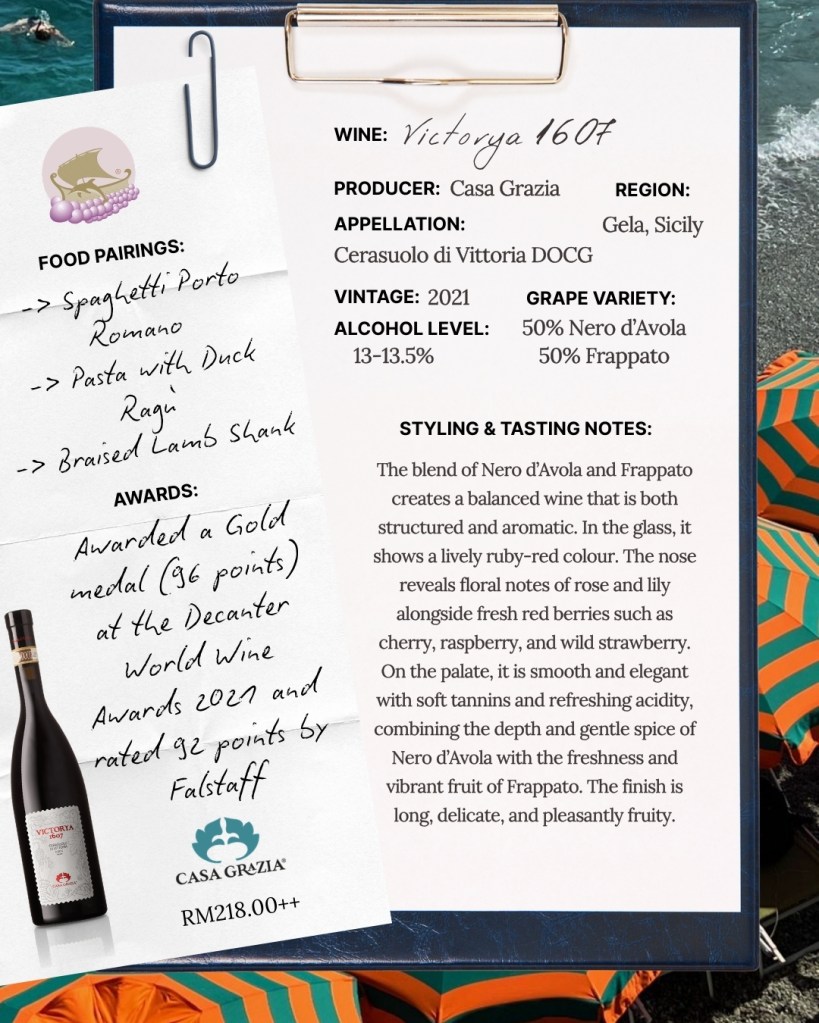 FOOD PAIRINGS:
-> Spaghetti Porto
Romano
-> Pasta with Duck
Ragù
-> Braised Lamb Shank
AWARDS:
Awarded a Gold
medal (96 points)
at the Decanter
World Wine
Awards 2021 and
rated 92 points by
Falstaff
VICTORYA
1607
CASA GRAZIA
CASA GRAZIA®
RM218.00++
WINE: Victorya 1607
PRODUCER: Casa Grazia
REGION:
Gela, Sicily
APPELLATION:
Cerasuolo di Vittoria DOCG
VINTAGE: 2021
GRAPE VARIETY:
50% Nero d’Avola
50% Frappato
ALCOHOL LEVEL:
13-13.5%
STYLING & TASTING NOTES:
The blend of Nero d’Avola and Frappato
creates a balanced wine that is both
structured and aromatic. In the glass, it
shows a lively ruby-red colour. The nose
reveals floral notes of rose and lily
alongside fresh red berries such as
cherry, raspberry, and wild strawberry.
On the palate, it is smooth and elegant
with soft tannins and refreshing acidity,
combining the depth and gentle spice of
Nero d’Avola with the freshness and
vibrant fruit of Frappato. The finish is
long, delicate, and pleasantly fruity.